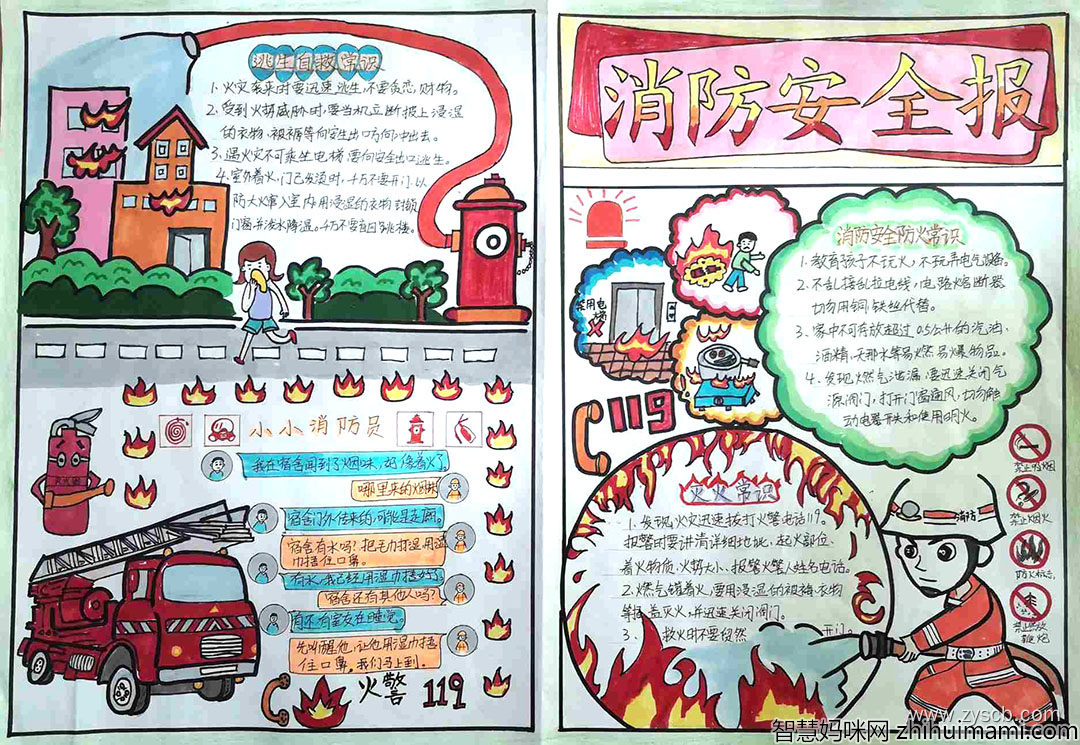 逃生自救常识
1、火灾来时要迅速逃生,不要贪恋财物。
2、受到火势威胁时,要当机立断披上浸湿
的衣物、被褥等向安全出口方向冲出去。
3、遇火灾不可乘坐电梯,要向安全出口逃生。
4、室外着火,门已发烫时,千万不要开门,以
防大火窜入室内,用浸湿的衣物封锁
门窗并泼水降温。千万不要盲目跳楼。
小小消防员
我在宿舍闻到了烟味,好像着火了。
哪里来的烟味
宿舍门外传来的,可能是走廊。
宿舍有水吗?把毛巾打湿用湿
巾捂住口鼻。
有水,我已经用湿巾捂好了。
宿舍还有其他人吗?
有,不有室友在睡觉。
先叫醒他,让他用湿巾捂
住口鼻。我们马上到。
火警 119
消防安全报
禁用电梯
119
消防安全防火常识
1、教育孩子不玩火,不玩弄电气设备。
2、不乱接乱拉电线,电路熔断器
切勿用铜、铁丝代替。
3、家中不可存放超过0.5公斤的汽油、
酒精、天那水等易燃易爆物品。
4、发现燃气泄漏,要迅速关闭气
源阀门,打开门窗通风,切勿触
动电器开关和使用明火。
灭火常识
1、发现火灾迅速拨打火警电话119。
报警时要讲清详细地址、起火部位、
着火物质、火势大小、报警人姓名电话。
2、燃气罐着火,要用浸湿的被褥、衣物
等捂盖灭火,并迅速关闭阀门。
3、 救火时不要贸然 开门。
消防
禁止吸烟
禁止烟火
禁止燃放
鞭炮
www.zyscb.com
智慧妈咪网 zhihuimami.com